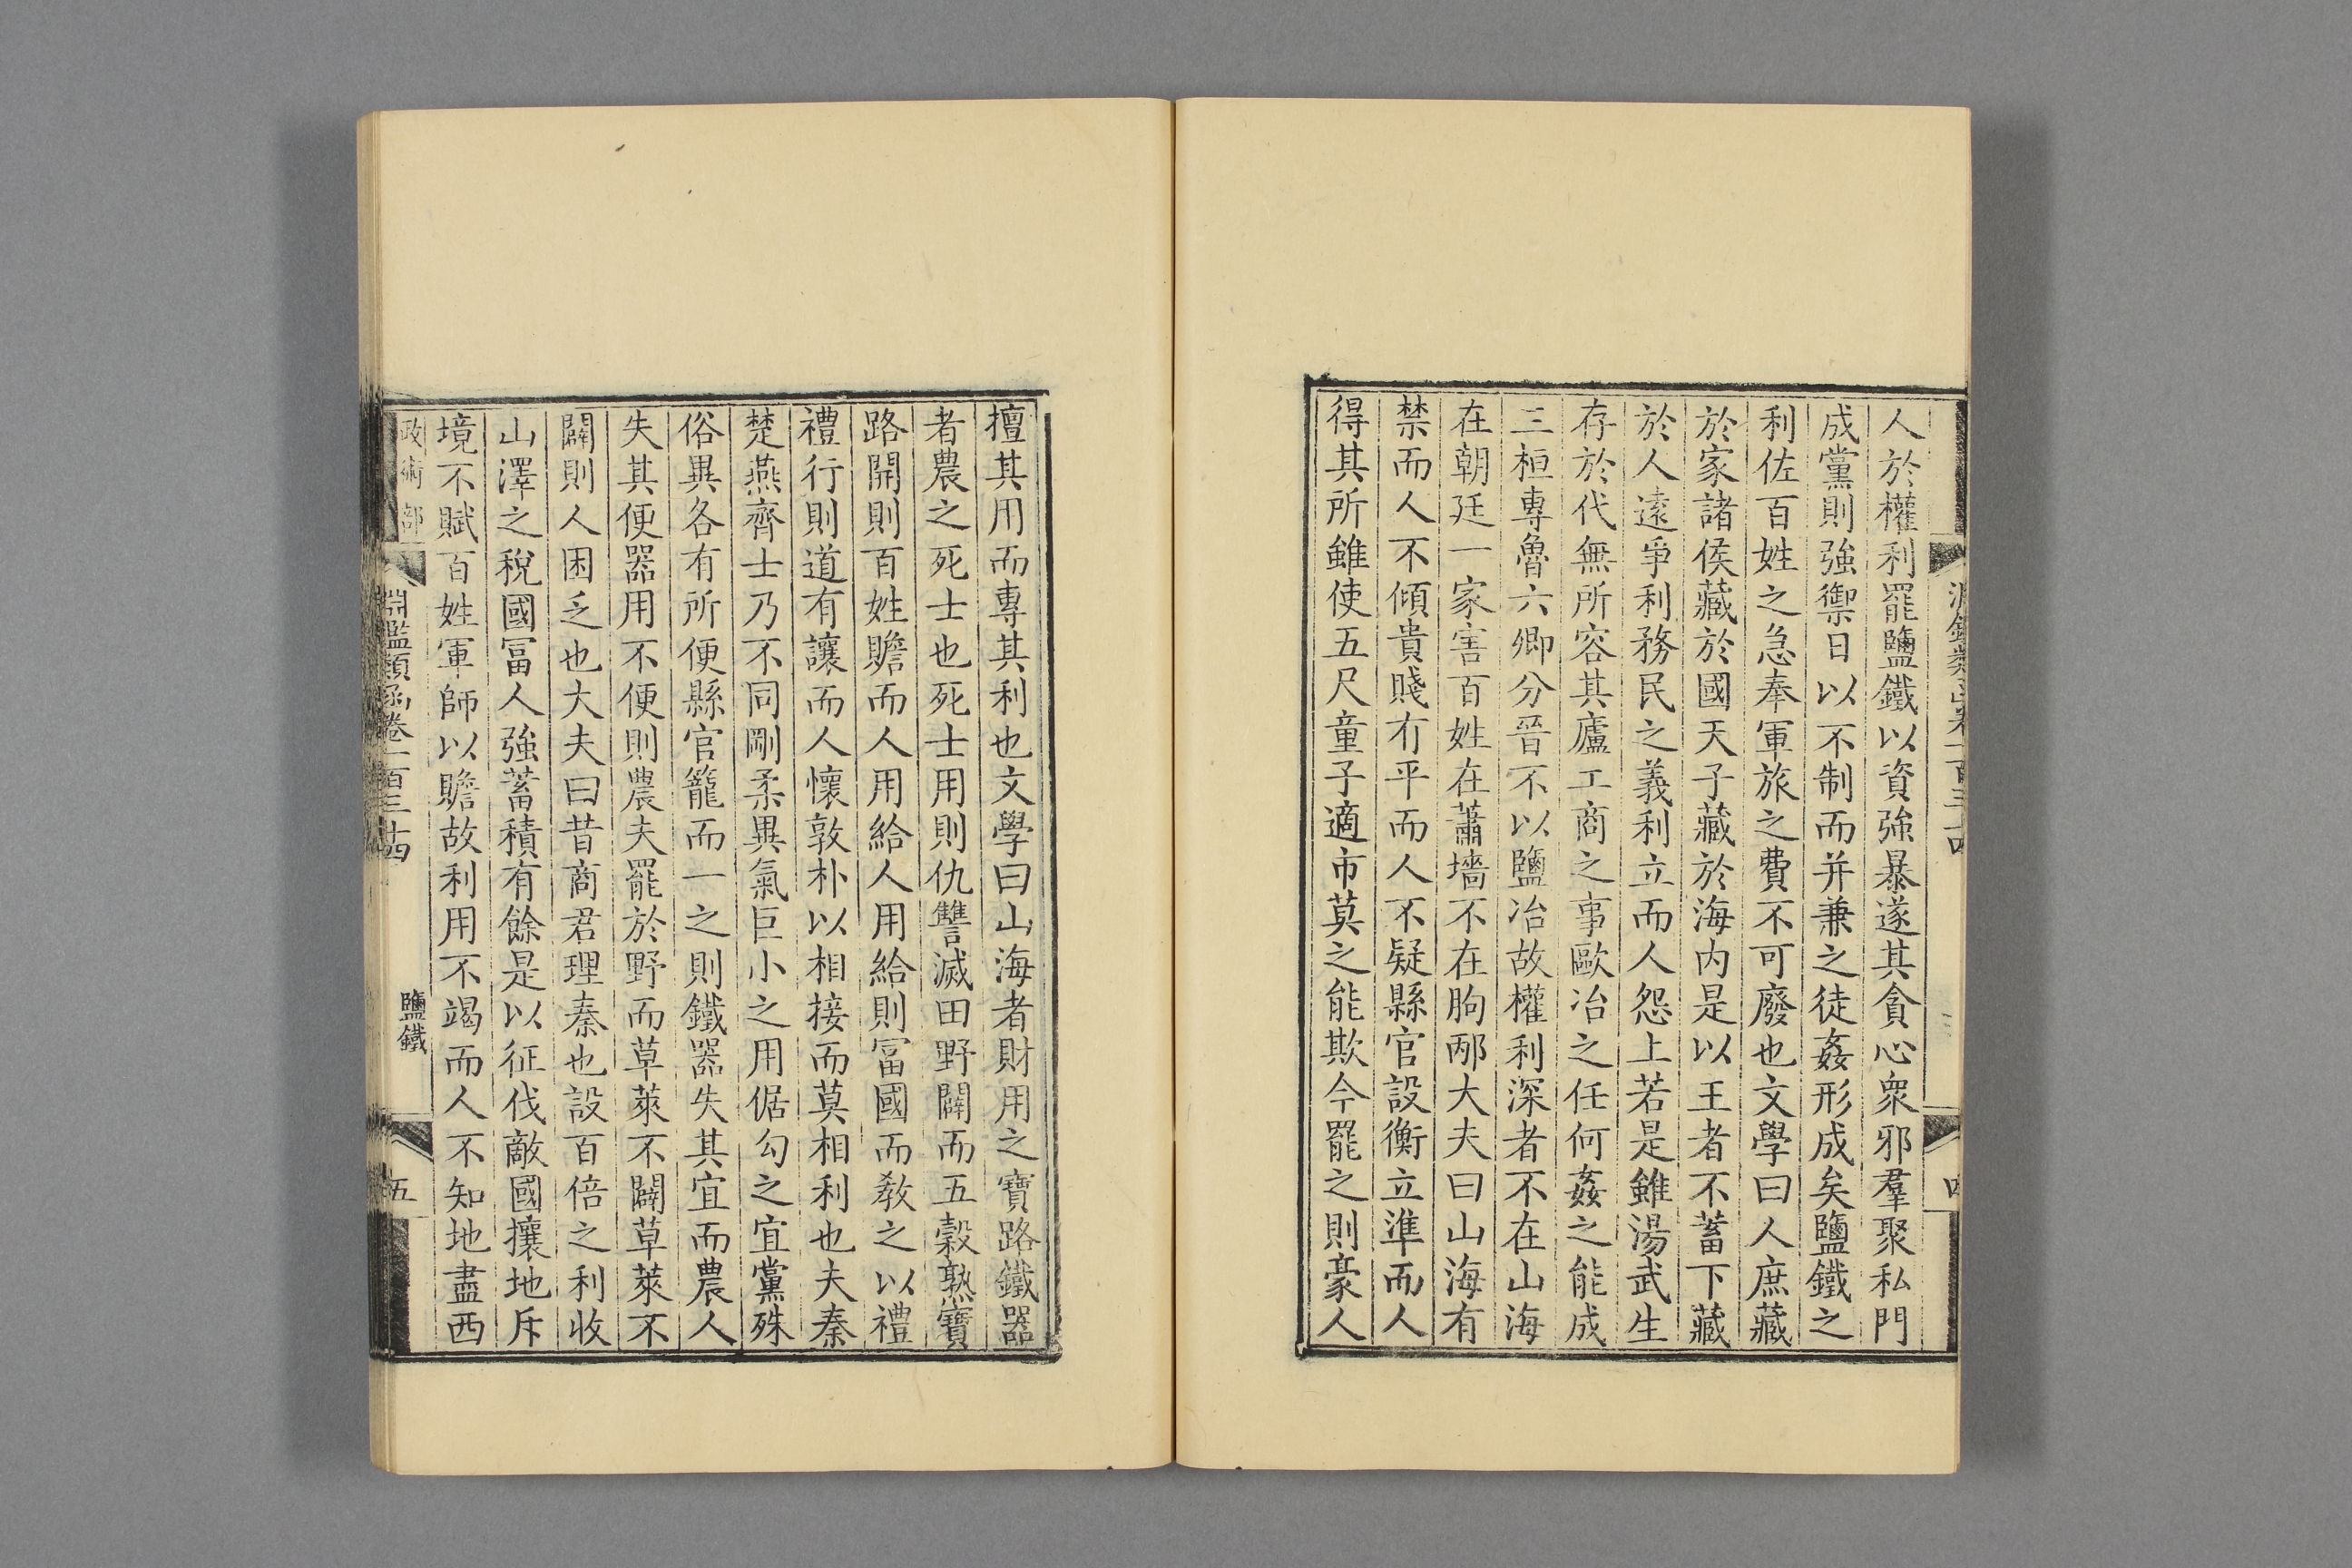 人於權利罷鹽鐵以資強暴遂其貪心衆邪羣聚私門
成黨則強禦日以不制而并兼之徒姦形成矣鹽鐵之
利佐百姓之急奉軍旅之費不可廢也文學曰人庶藏
於家諸侯藏於國天子藏於海内是以王者不蓄下藏
於人遠爭利務民之義利立而人怨上若是雖湯武生
存於代無所容其廬工商之事歐冶之任何姦之能成
三桓專魯六卿分晉不以鹽冶故權利深者不在山海
在朝廷一家害百姓在蕭墻不在朐邴大夫曰山海有
禁而人不傾貴賤有平而人不疑縣官設衡立準而人
得其所雖使五尺童子適市莫之能欺今罷之則豪人
擅其用而專其利也文學曰山海者財用之寶路鐵器
者農之死士也死士用則仇讐滅田野闢而五穀熟寶
路開則百姓贍而人用給人用給則富國而敎之以禮
禮行則道有讓而人懷敦朴以相接而莫相利也夫秦
楚燕齊士乃不同剛柔異氣巨小之用倨勾之宜黨殊
俗異各有所便縣官籠而一之則鐵器失其宜而農人
失其便器用不便則農夫罷於野而草萊不闢草萊不
闢則人困乏也大夫曰昔商君理秦也設百倍之利收
山澤之稅國富人強蓄積有餘是以征伐敵國攘地斥
境不賦百姓軍師以贍故利用不竭而人不知地盡西
政術部
淵鑑類函卷一百三十四
鹽鐵
五